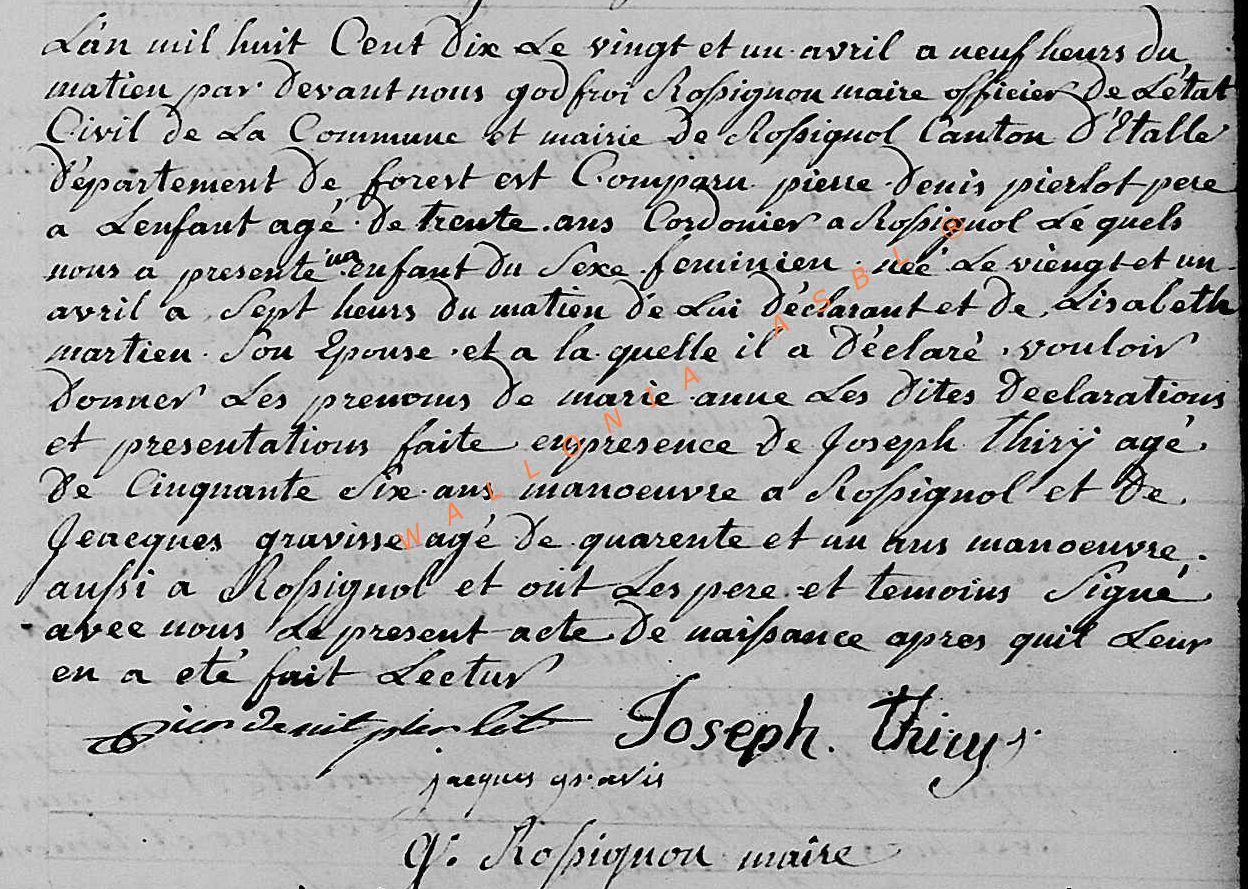 L'an mil huit Cent dix Le vingt et un avril a neuf heurs du
matien par devant nous godfroi Rossignon maire officier de L'état
Civil de La Commune et mairie de Rossignol Canton d'Etalle
département de forest est Comparu pierre denis pierlot pere
a Lenfant agé de trente ans Cordonier a Rossignol Le quels
nous a presenté un enfant du Sexe feminien neé Le viengt et un
avril a Sept heurs du matien de Lui déclarant et de Lisabeth
martien Son Epouse et a la quelle il a déclaré vouloir
donner Les prenoms de marie anne Les dites declarations
et presentations faite enpresence de Joseph thirÿ agé
de Cinquante Six ans manoeuvre a Rossignol et de
Jeacques gravisse agé de quarente et un ans manoeuvre
aussi a Rossignol et ont Les pere et temoins Signé
avec nous Le present acte de naissance apres quil Leur
en a eté fait Lectur
pier denit pierlot Joseph. thiry
jacques gravis
g. Rossignon maire
WALLONIA ASBL ®